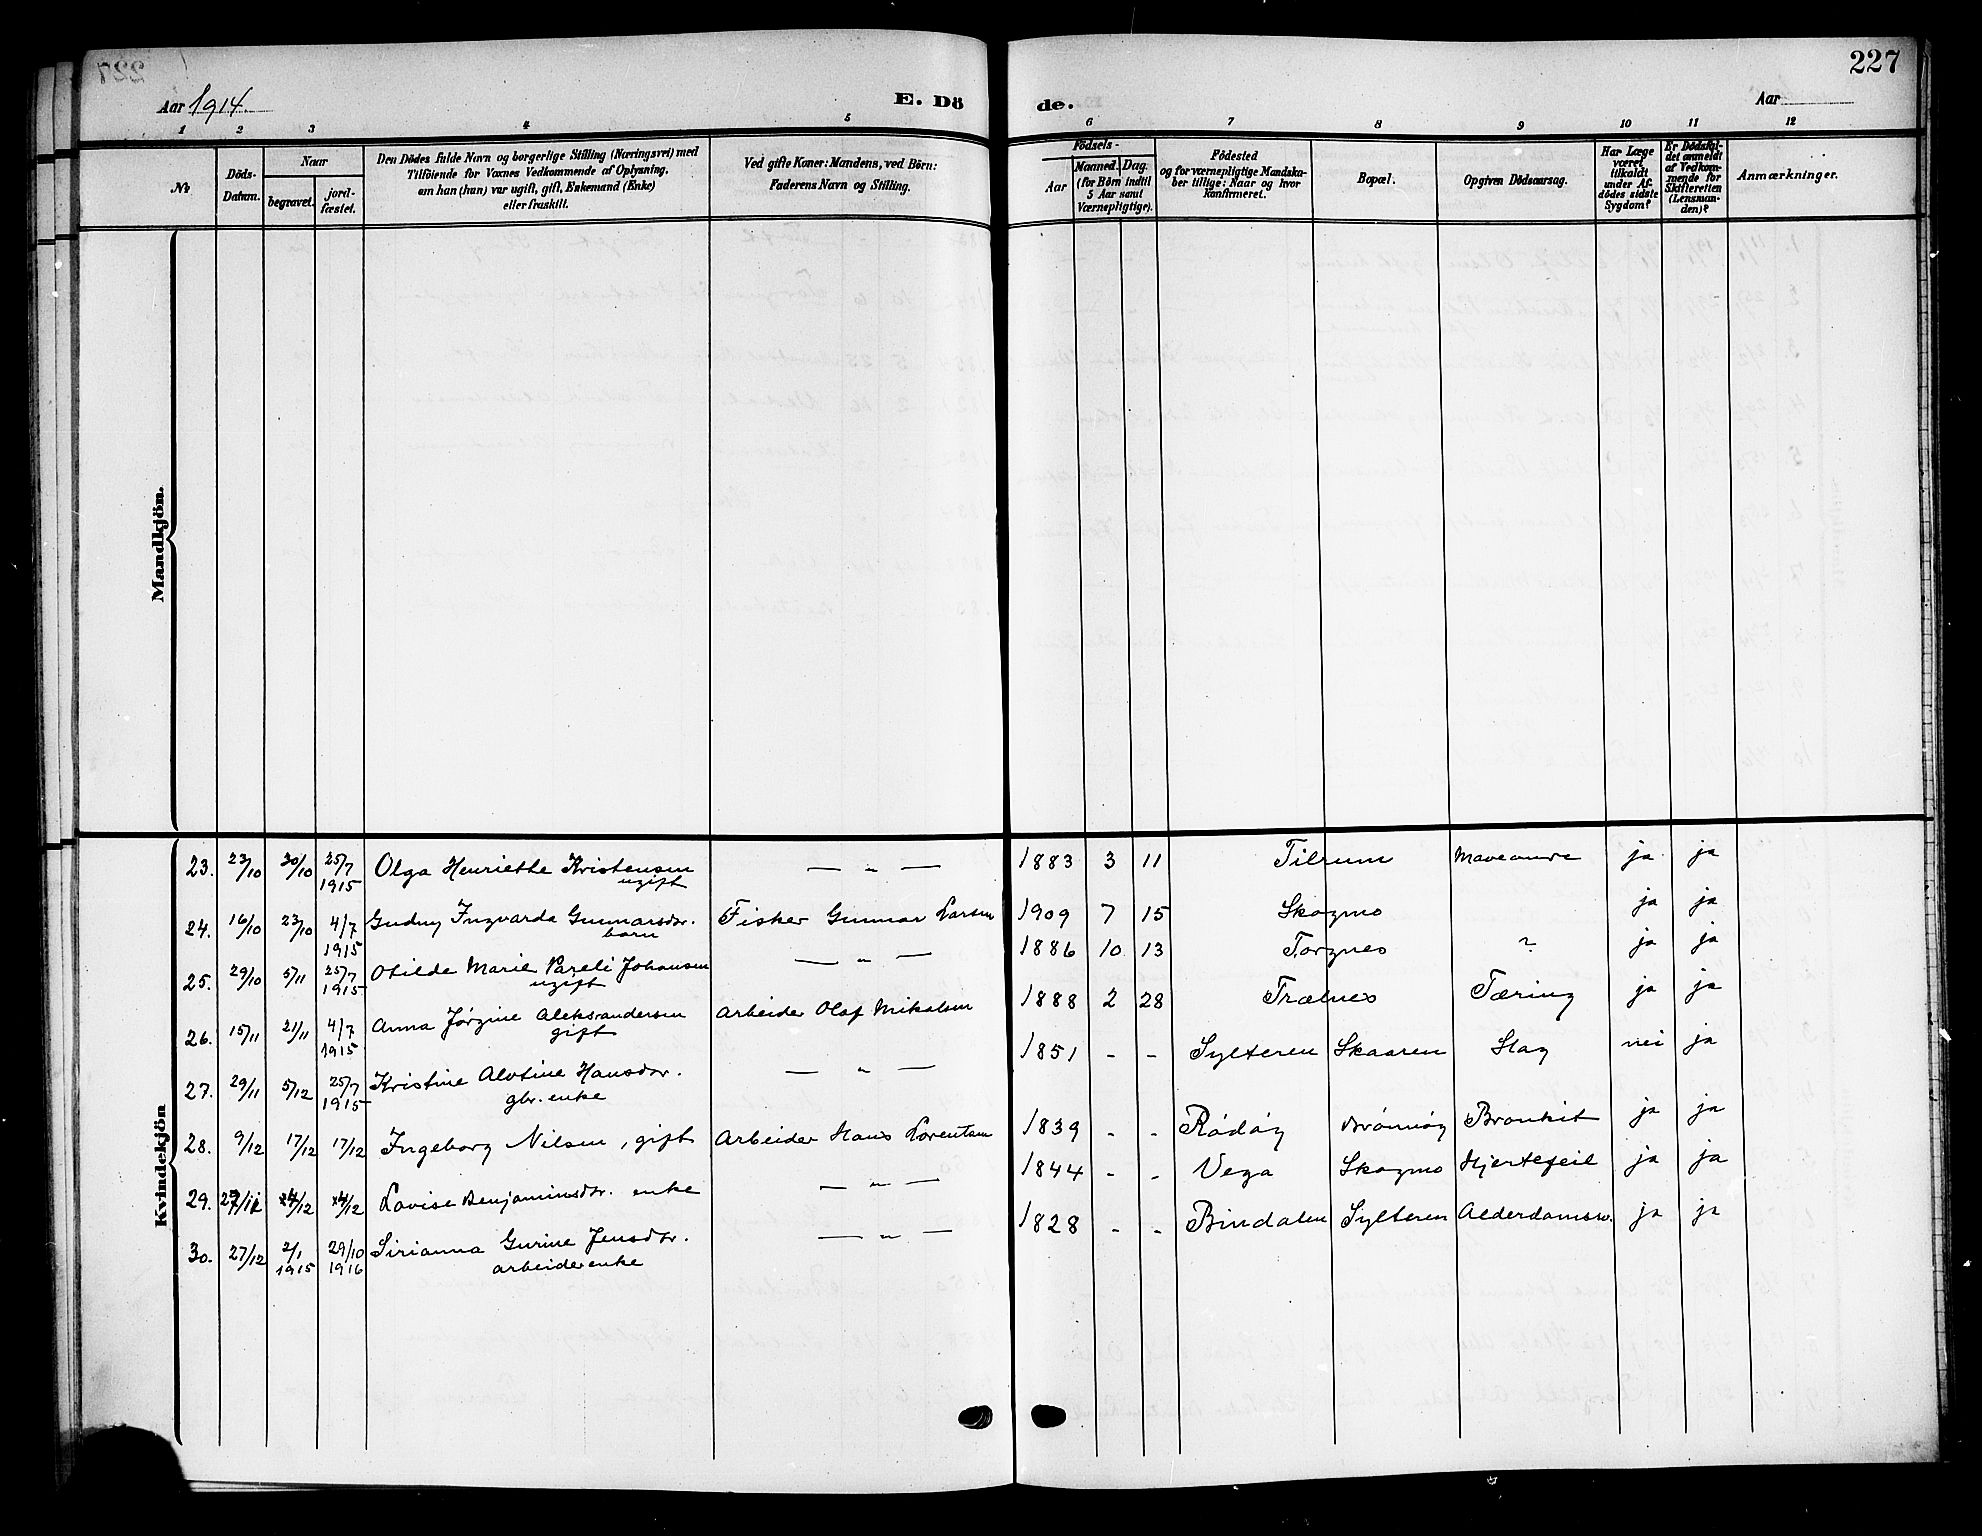 227
Aar 1914.
E. Dö
de.
Aar
1 2 3 4 5 6 7 8 9 10 11 12
№
Döds-
Datum.
Naar
begravet.
jord-
fæstet.
Den Dödes fulde Navn og borgerlige Stilling (Næringsvei) med
Tilföiende for Voxnes Vedkommende af Oplysning,
om han (hun) var ugift, gift, Enkemand (Enke)
eller fraskilt.
Ved gifte Koner: Mandens, ved Börn:
Faderens Navn og Stilling.
Födsels-
Aar
Maaned. Dag.
(for Börn indtil
5 Aar samt
Værnepligtige).
Födested
og for værnepligtige Mandska-
ber tillige: Naar og hvor
konfirmeret.
Bopæl.
Opgiven Dödsaarsag.
Har Læge
været
tilkaldt
under Af-
dödes sidste
Sygdom?
Er Dödsfal-
det anmeldt
af Vedkom-
mende for
Skifteretten
(Lensman-
den)?
Anmærkninger.
Mandkjön.
Kvindekjön
23. 23/10 30/10 25/7 1915 Olga Henriette Kristensen — „ — 1883 3 11 Tilrum ja ja
ugift
24. 16/10 23/10 4/7 1915 Gudny Ingvarda Gunnarsdtr. Fisker Gunnar Larsen 1909 7 15 Skogmo ja ja
barn
25. 29/10 5/11 25/7 1915 Otilde Marie Pareli Johansen — „ — 1886 10 13 Torgnes ? ja ja
ugift
26. 15/11 21/11 4/7 1915 Anna Jørgine Aleksandersen Arbeider Olaf Mikalsen 1888 2 28 Trælnes Tæring ja ja
gift
27. 29/11 5/12 25/7 1915 Kristine Alotine Hansdtr. — „ — 1851 - - Sylteren Skaaren Slag nei ja
gbr. enke
28. 9/12 17/12 17/12 Ingeborg Nilsen, gift Arbeider Hans Lorentsen 1839 - - Rødøy Brønnøy Bronkit ja ja
29. 24/12 24/12 Lovise Benjaminsdtr. enke — „ — 1844 - - Vega Skogmo Hjertefeil ja ja
30. 27/12 2/1 1915 29/10 1916 Sirianna Gurine Jensdtr. — „ — 1828 - - Bindalen Sylteren Alderdomssv. ja ja
arbeiderenke